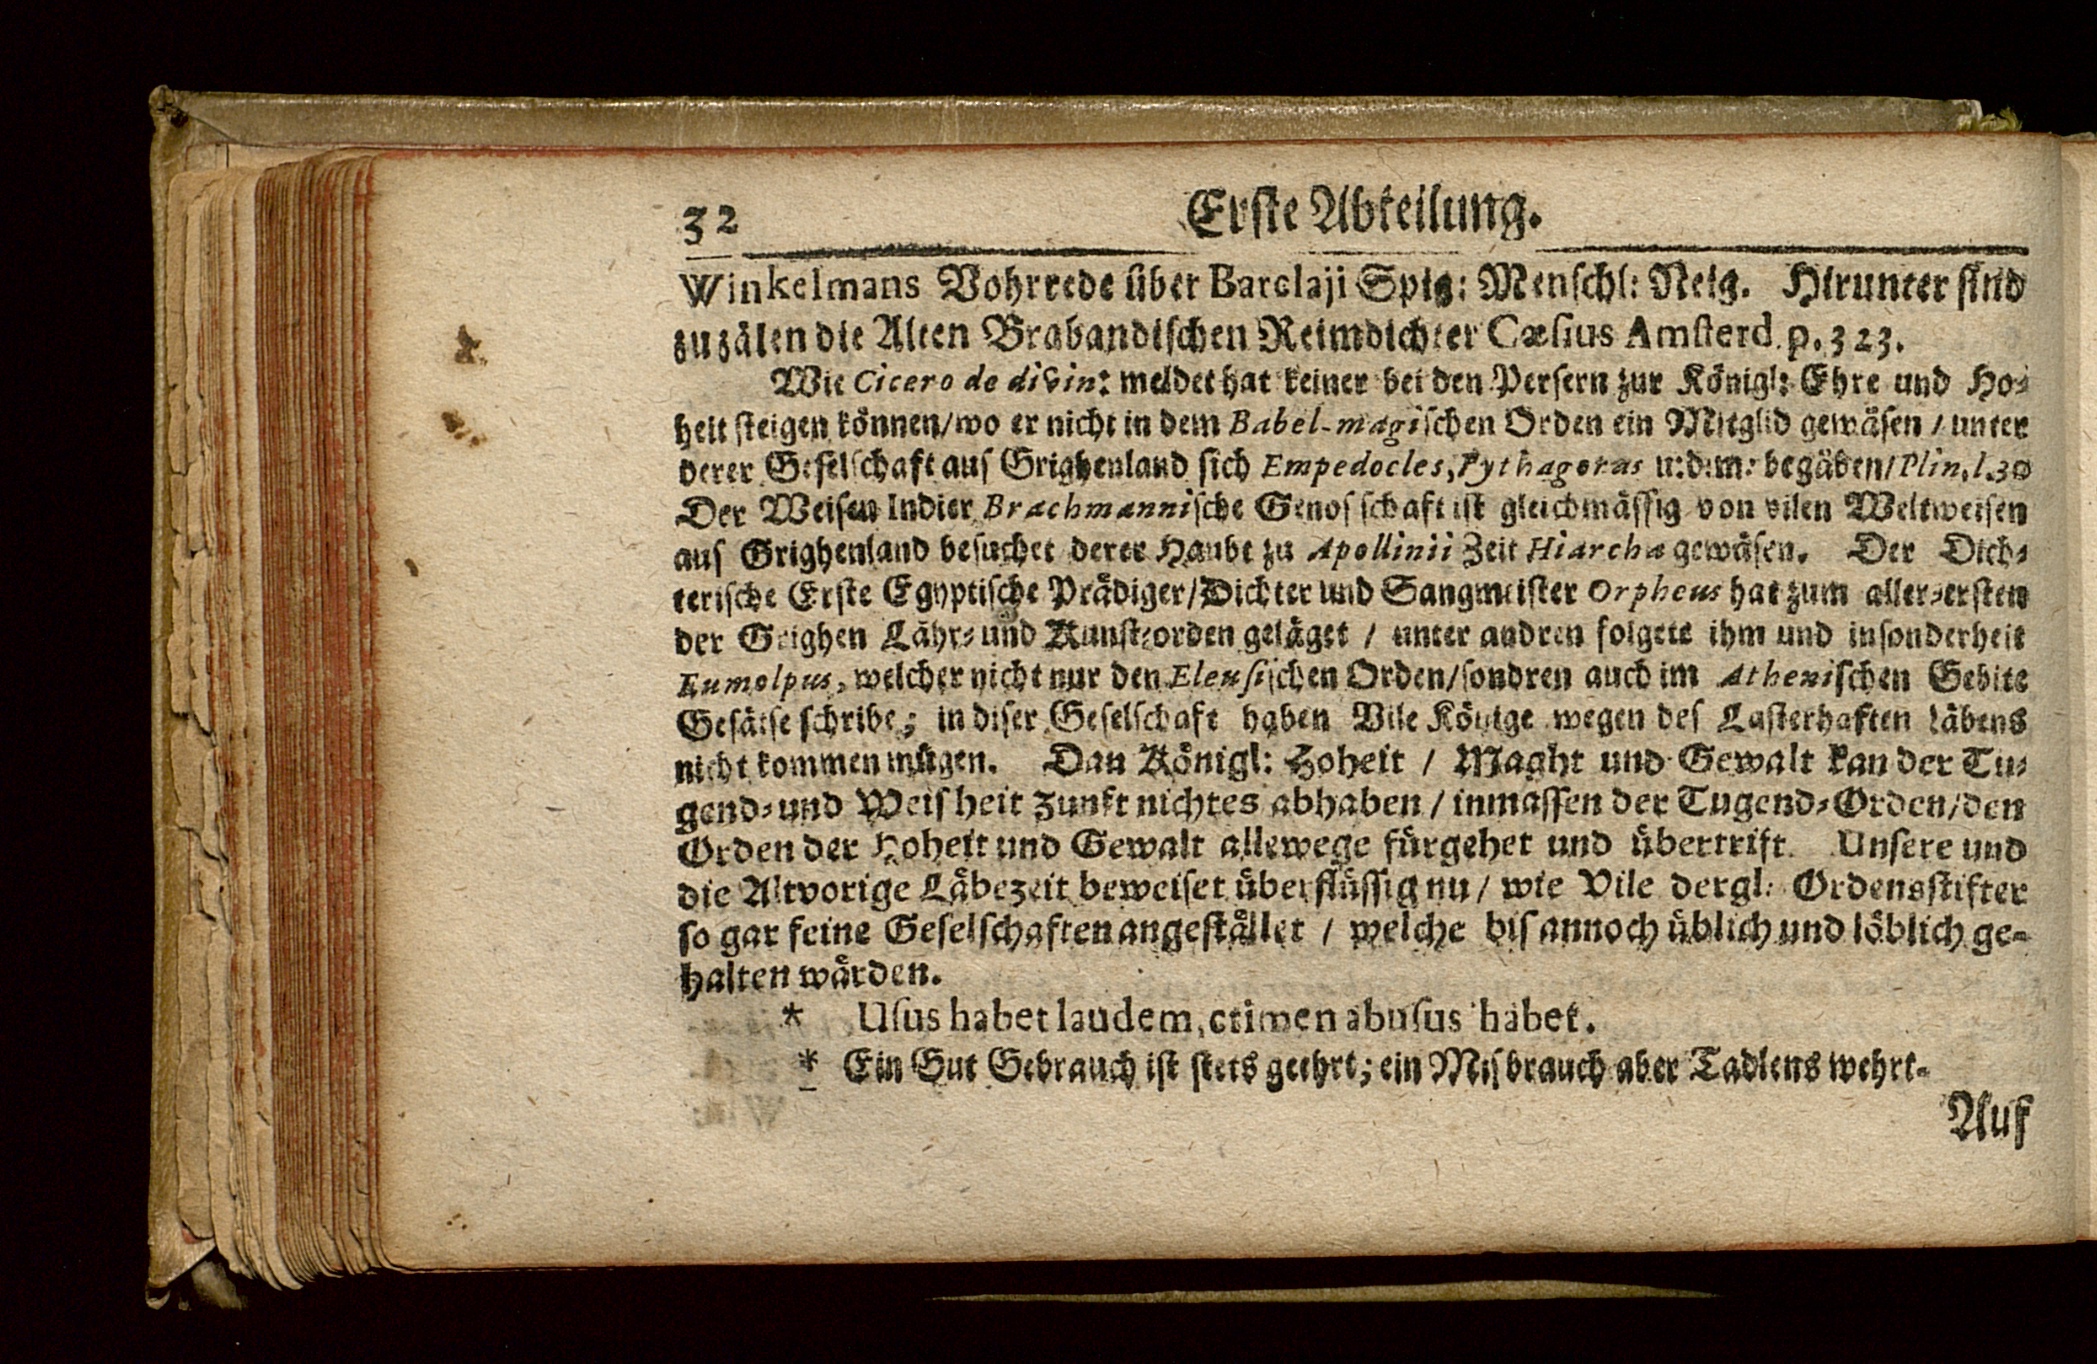 32 Erste Abteilung.
Winkelmans Vohrrede über Barclaji Spig: Menschl: Neig. Hirunter sind
zu zälen die Alten Brabandischen Reimdichter Cæsius Amsterd. p. 323.
Wie Cicero de divin: meldet hat keiner bei den Persern zur Königl: Ehre und Ho-
heit steigen können/wo er nicht in dem Babel-magischen Orden ein Mitglid gewäsen / unter
derer Geselschaft aus Grighenland sich Empedocles, Pythagoras u:d:m: begäben/Plin. l. 30
Der Weisen Indier Brachmannische Genosschaft ist gleichmässig von vilen Weltweisen
aus Grighenland besuchet derer Haubt zu Apollinii Zeit Hiarcha gewäsen. Der Dich-
terische Erste Egyptische Prädiger/Dichter und Sangmeister Orpheus hat zum aller-ersten
der Grighen Lähr- und Kunst-orden geläget / unter andren folgete ihm und insonderheit
Eumolpus, welcher nicht nur den Eleusischen Orden/sondren auch im Athenischen Gebite
Gesätse schribe; in diser Geselschaft haben Vile Könige wegen des Lasterhaften läbens
nicht kommen mügen. Dan Königl: Hoheit / Maght und Gewalt kan der Tu-
gend- und Weisheit zunft nichtes abhaben / inmassen der Tugend-Orden/den
Orden der Hoheit und Gewalt allewege fürgehet und übertrift. Unsere und
die Altvorige Läbezeit beweiset überflüssig nu / wie Vile dergl: Ordensstifter
so gar feine Geselschaften angestället / welche bis annoch üblich und löblich ge-
halten wärden.
* Usus habet laudem, crimen abusus habet.
* Ein Gut Gebrauch ist stets geehrt; ein Misbrauch aber Tadlens wehrt.
Auf